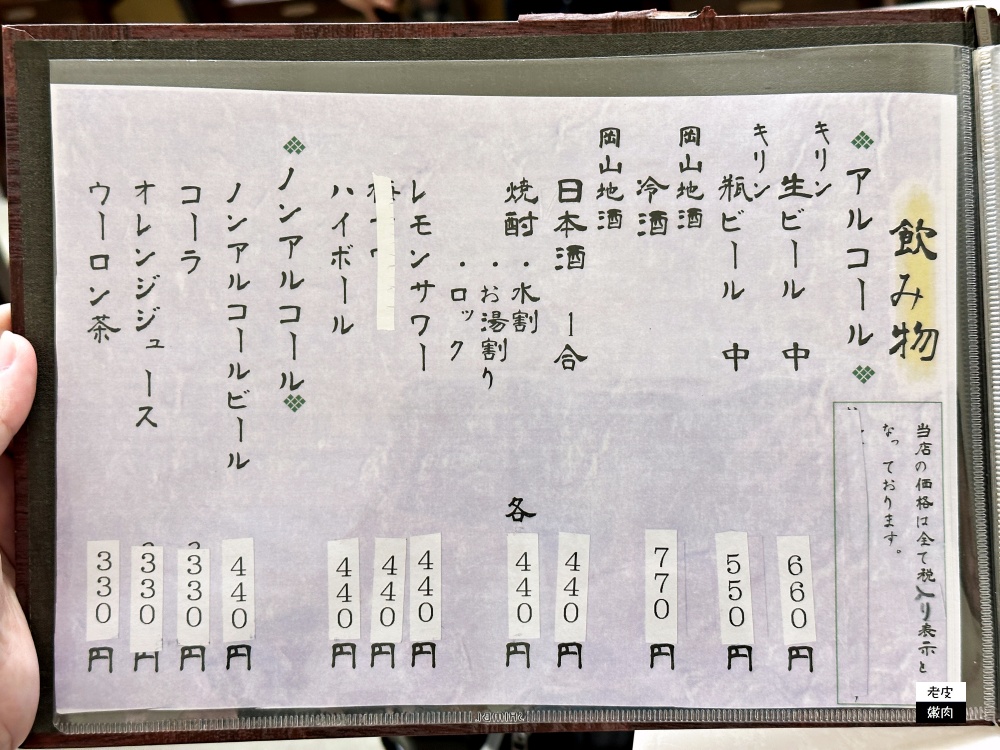 飲み物
当店の価格は全て税入り表示と
なっております。
アルコール
キリン
生ビール 中
660円
キリン
瓶ビール 中
550円
岡山地酒
冷酒
770円
岡山地酒
日本酒 一合
440円
焼酎
・水割
・お湯割り
・ロック
各
440円
レモンサワー
440円
440円
ハイボール
440円
ノンアルコール
ノンアルコールビール
440円
コーラ
330円
オレンジジュース
330円
ウーロン茶
330円
老皮
嫩肉